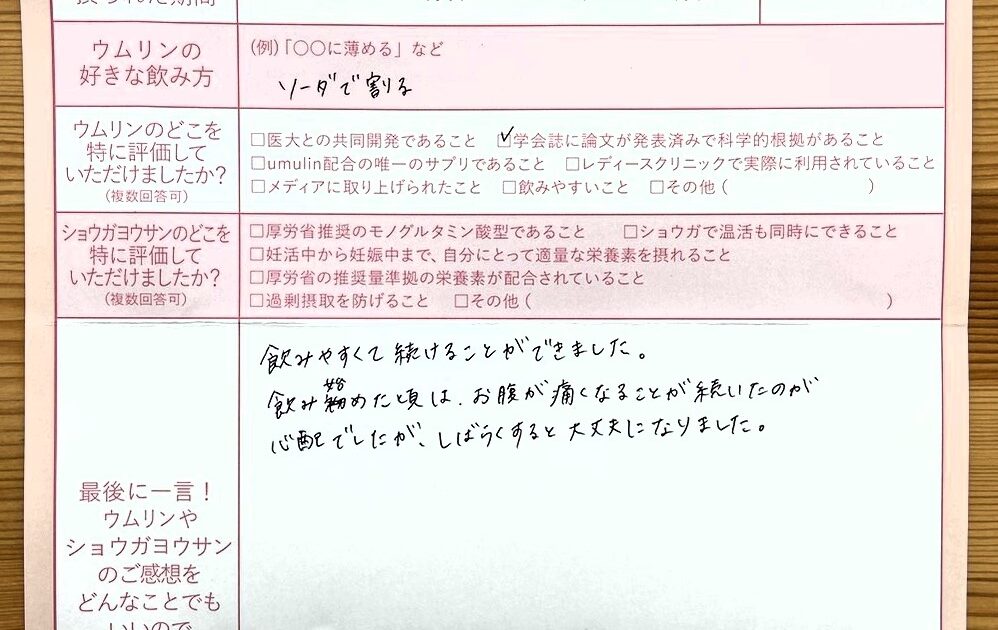 ウムリンの
好きな飲み方
(例)「〇〇に薄める」など
ソーダで割る
ウムリンのどこを
特に評価して
いただけましたか?
(複数回答可)
□医大との共同開発であること ☑学会誌に論文が発表済みで科学的根拠があること
□umulin配合の唯一のサプリであること □レディースクリニックで実際に利用されていること
□メディアに取り上げられたこと □飲みやすいこと □その他( )
ショウガヨウサンのどこを
特に評価して
いただけましたか?
(複数回答可)
□厚労省推奨のモノグルタミン酸型であること □ショウガで温活も同時にできること
□妊活中から妊娠中まで、自分にとって適量な栄養素を摂れること
□厚労省の推奨量準拠の栄養素が配合されていること
□過剰摂取を防げること □その他( )
最後に一言!
ウムリンや
ショウガヨウサン
のご感想を
どんなことでも
いいので
飲みやすくて続けることができました。
飲み始めた頃は、お腹が痛くなることが続いたのが
心配でしたが、しばらくすると大丈夫になりました。